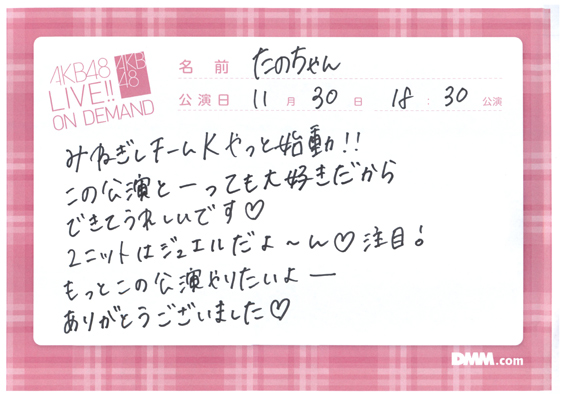 AKB48
LIVE!!
ON DEMAND
AKB
48
名前 たのちゃん
公演日 11月30日 18:30公演
みねぎしチームKやっと始動!!
この公演とーっても大好きだから
できてうれしいです♡
ユニットはジュエルだよ〜ん♡注目!
もっとこの公演やりたいよー
ありがとうございました♡
DMM.com